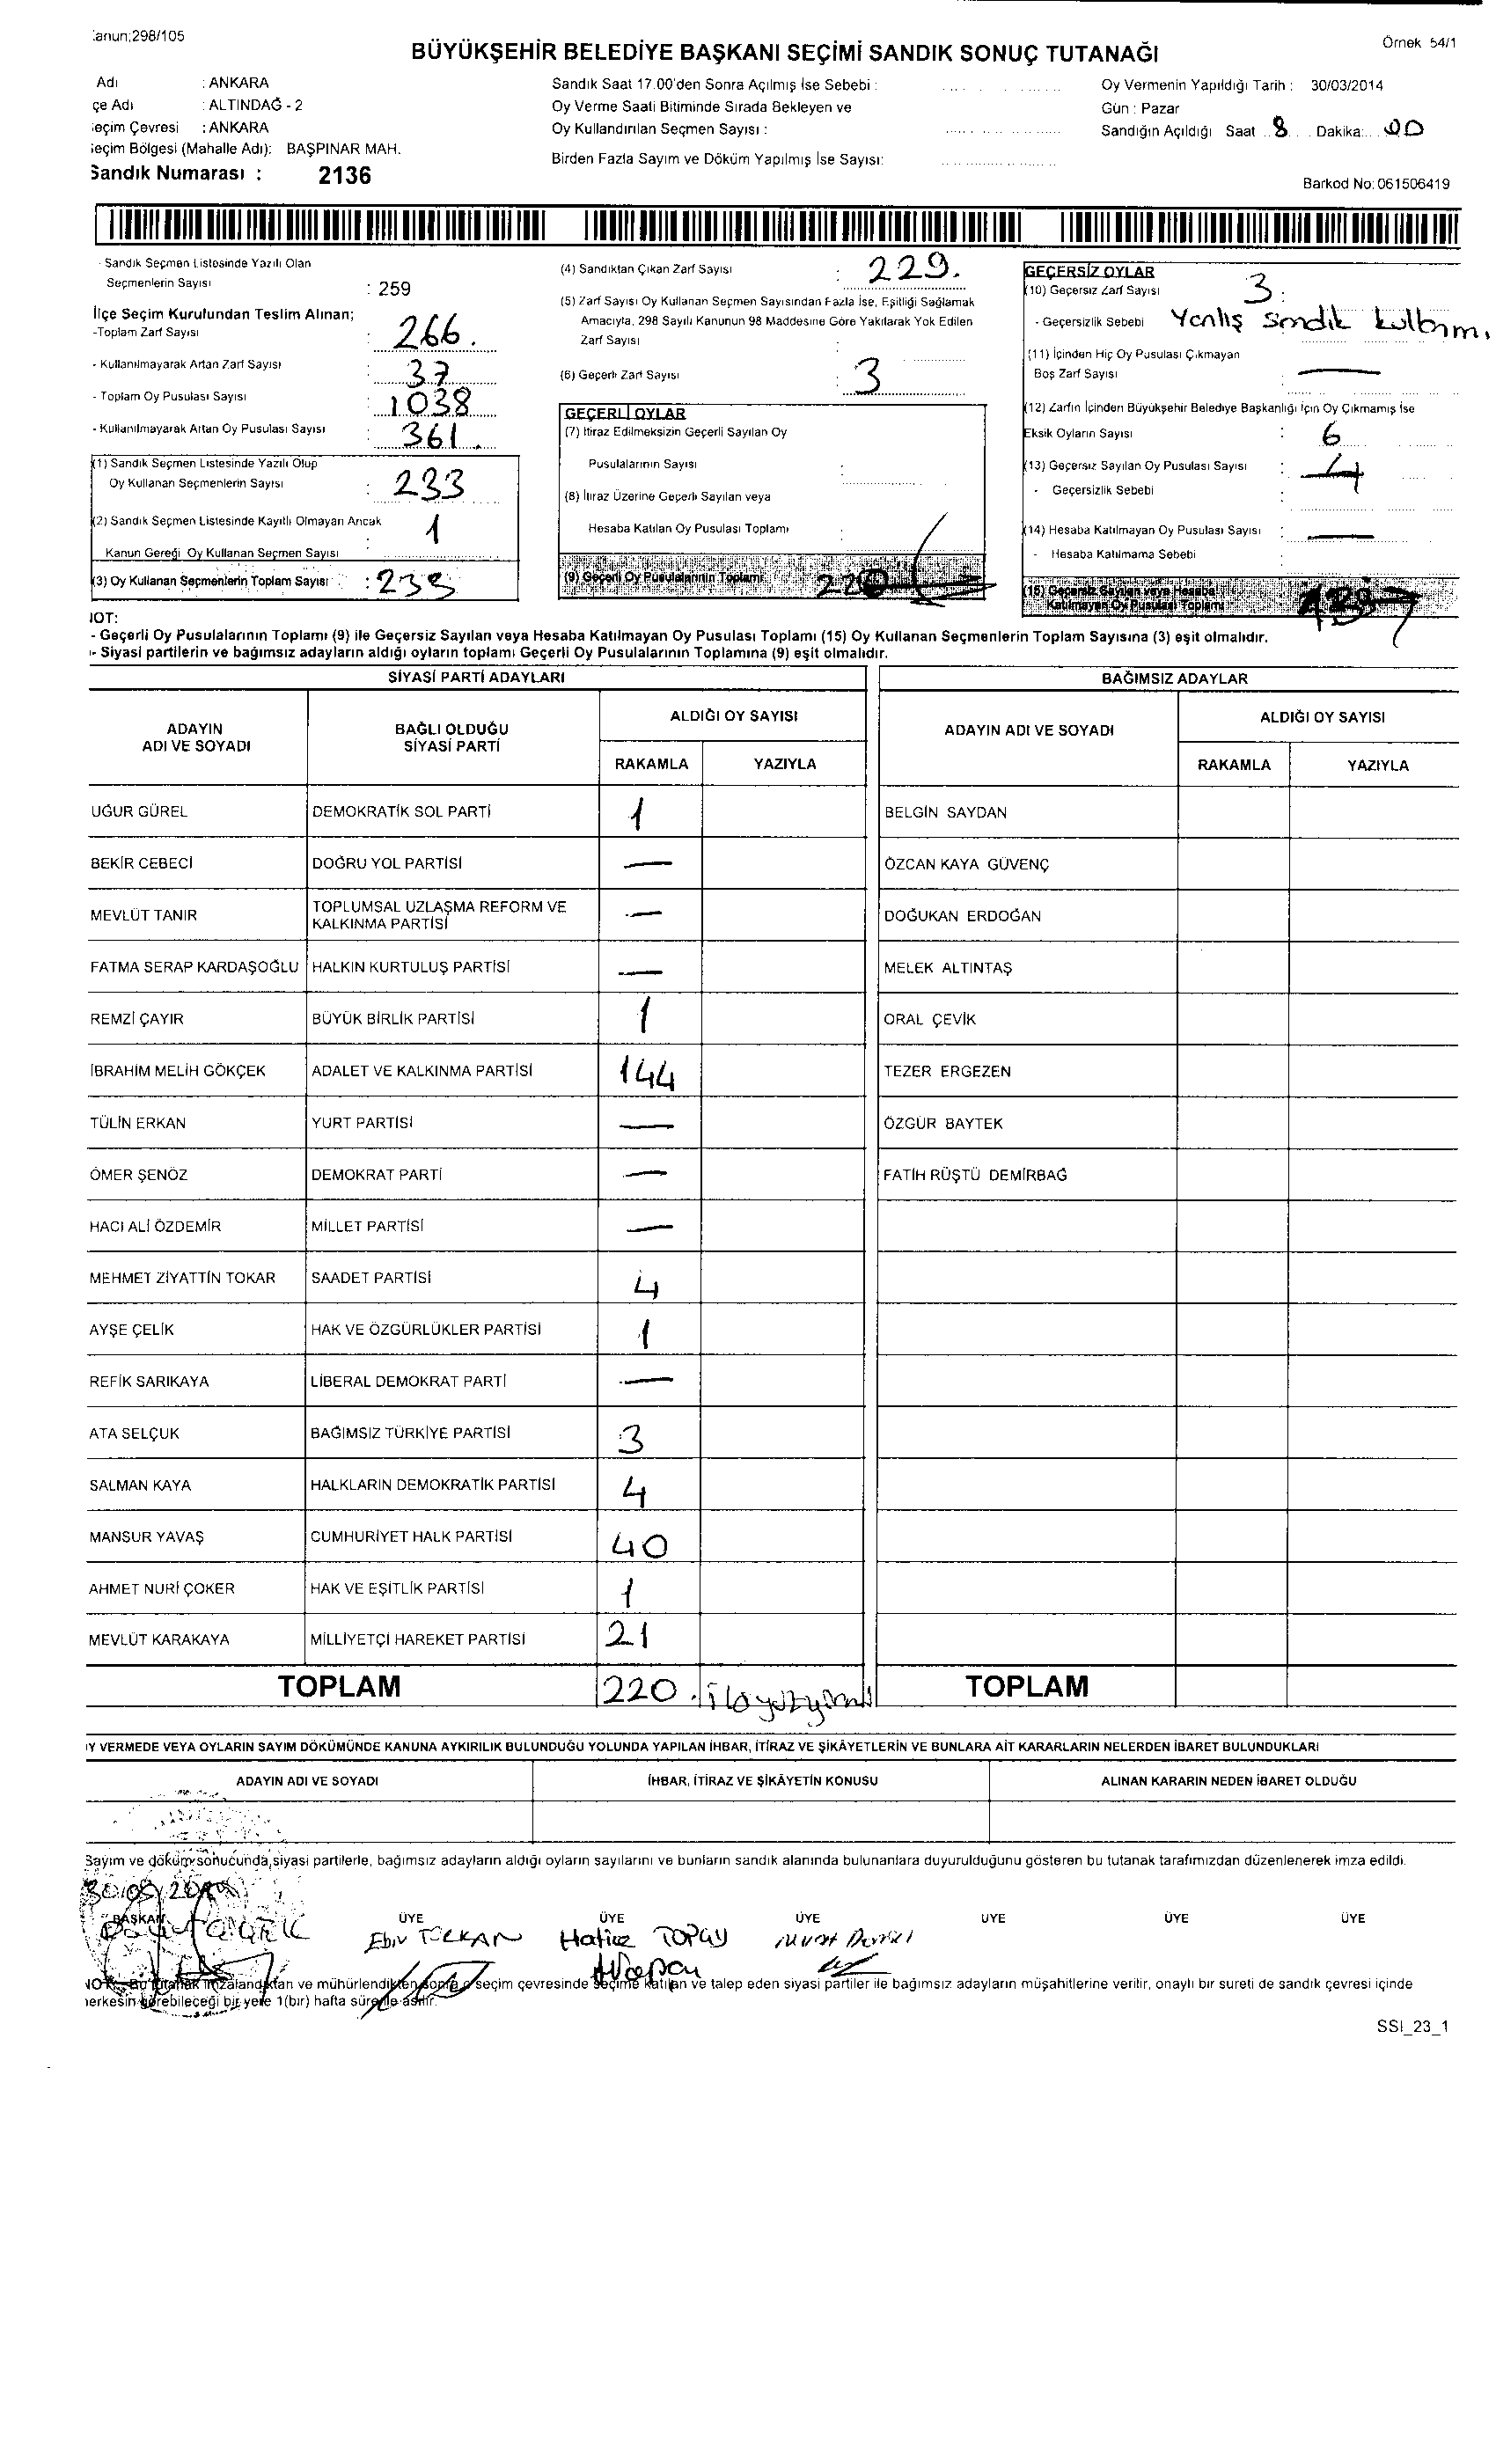 :anun;298/105
Örnek 54/1
BÜYÜKŞEHİR BELEDİYE BAŞKANI SEÇİMİ SANDIK SONUÇ TUTANAĞI
Adı : ANKARA
çe Adı : ALTINDAĞ - 2
eçim Çevresi : ANKARA
eçim Bölgesi (Mahalle Adı): BAŞPINAR MAH.
Sandık Numarası : 2136
Sandık Saat 17.00'den Sonra Açılmış İse Sebebi :
Oy Verme Saati Bitiminde Sırada Bekleyen ve
Oy Kullandırılan Seçmen Sayısı :
Birden Fazla Sayım ve Döküm Yapılmış İse Sayısı:
Oy Vermenin Yapıldığı Tarih : 30/03/2014
Gün : Pazar
Sandığın Açıldığı Saat 8 Dakika: 00
Barkod No: 061506419
- Sandık Seçmen Listesinde Yazılı Olan
Seçmenlerin Sayısı : 259
İlçe Seçim Kurulundan Teslim Alınan;
-Toplam Zarf Sayısı : 266.
- Kullanılmayarak Artan Zarf Sayısı : 37
- Toplam Oy Pusulası Sayısı : 1038
- Kullanılmayarak Artan Oy Pusulası Sayısı : 361.
(1) Sandık Seçmen Listesinde Yazılı Olup
Oy Kullanan Seçmenlerin Sayısı : 233
(2) Sandık Seçmen Listesinde Kayıtlı Olmayan Ancak
Kanun Gereği Oy Kullanan Seçmen Sayısı : 1
(3) Oy Kullanan Seçmenlerin Toplam Sayısı : 233
(4) Sandıktan Çıkan Zarf Sayısı : 229.
(5) Zarf Sayısı Oy Kullanan Seçmen Sayısından Fazla İse, Eşitliği Sağlamak
Amacıyla, 298 Sayılı Kanunun 98 Maddesine Göre Yakılarak Yok Edilen
Zarf Sayısı :
(6) Geçerli Zarf Sayısı : 3
GEÇERLİ OYLAR
(7) İtiraz Edilmeksizin Geçerli Sayılan Oy
Pusulalarının Sayısı :
(8) İtiraz Üzerine Geçerli Sayılan veya
Hesaba Katılan Oy Pusulası Toplamı :
(9) Geçerli Oy Pusulalarının Toplamı 220
GEÇERSİZ OYLAR
(10) Geçersiz Zarf Sayısı : 3
- Geçersizlik Sebebi Yanlış sandık
(11) İçinden Hiç Oy Pusulası Çıkmayan
Boş Zarf Sayısı : —
(12) Zarfın İçinden Büyükşehir Belediye Başkanlığı İçin Oy Çıkmamış İse
Eksik Oyların Sayısı : 6
(13) Geçersiz Sayılan Oy Pusulası Sayısı : 4
- Geçersizlik Sebebi
(14) Hesaba Katılmayan Oy Pusulası Sayısı : —
- Hesaba Katılmama Sebebi
(15) Geçersiz Sayılan veya Hesaba
Katılmayan Oy Pusulası Toplamı
NOT:
- Geçerli Oy Pusulalarının Toplamı (9) ile Geçersiz Sayılan veya Hesaba Katılmayan Oy Pusulası Toplamı (15) Oy Kullanan Seçmenlerin Toplam Sayısına (3) eşit olmalıdır.
- Siyasi partilerin ve bağımsız adayların aldığı oyların toplamı Geçerli Oy Pusulalarının Toplamına (9) eşit olmalıdır.
SİYASİ PARTİ ADAYLARI
BAĞIMSIZ ADAYLAR
ADAYIN
ADI VE SOYADI
BAĞLI OLDUĞU
SİYASİ PARTİ
ALDIĞI OY SAYISI
RAKAMLA YAZIYLA
ADAYIN ADI VE SOYADI
ALDIĞI OY SAYISI
RAKAMLA YAZIYLA
UĞUR GÜREL DEMOKRATİK SOL PARTİ 1 BELGİN SAYDAN
BEKİR CEBECİ DOĞRU YOL PARTİSİ — ÖZCAN KAYA GÜVENÇ
MEVLÜT TANIR TOPLUMSAL UZLAŞMA REFORM VE
KALKINMA PARTİSİ — DOĞUKAN ERDOĞAN
FATMA SERAP KARDAŞOĞLU HALKIN KURTULUŞ PARTİSİ — MELEK ALTINTAŞ
REMZİ ÇAYIR BÜYÜK BİRLİK PARTİSİ 1 ORAL ÇEVİK
İBRAHİM MELİH GÖKÇEK ADALET VE KALKINMA PARTİSİ 144 TEZER ERGEZEN
TÜLİN ERKAN YURT PARTİSİ — ÖZGÜR BAYTEK
ÖMER ŞENÖZ DEMOKRAT PARTİ — FATİH RÜŞTÜ DEMİRBAĞ
HACI ALİ ÖZDEMİR MİLLET PARTİSİ —
MEHMET ZİYATTİN TOKAR SAADET PARTİSİ 4
AYŞE ÇELİK HAK VE ÖZGÜRLÜKLER PARTİSİ 1
REFİK SARIKAYA LİBERAL DEMOKRAT PARTİ —
ATA SELÇUK BAĞIMSIZ TÜRKİYE PARTİSİ 3
SALMAN KAYA HALKLARIN DEMOKRATİK PARTİSİ 4
MANSUR YAVAŞ CUMHURİYET HALK PARTİSİ 40
AHMET NURİ ÇOKER HAK VE EŞİTLİK PARTİSİ 1
MEVLÜT KARAKAYA MİLLİYETÇİ HAREKET PARTİSİ 21
TOPLAM 220 TOPLAM
Y VERMEDE VEYA OYLARIN SAYIM DÖKÜMÜNDE KANUNA AYKIRILIK BULUNDUĞU YOLUNDA YAPILAN İHBAR, İTİRAZ VE ŞİKÂYETLERİN VE BUNLARA AİT KARARLARIN NELERDEN İBARET BULUNDUKLARI
ADAYIN ADI VE SOYADI İHBAR, İTİRAZ VE ŞİKÂYETİN KONUSU ALINAN KARARIN NEDEN İBARET OLDUĞU
Sayım ve döküm sonucunda, siyasi partilerle, bağımsız adayların aldığı oyların sayılarını ve bunların sandık alanında bulunanlara duyurulduğunu gösteren bu tutanak tarafımızdan düzenlenerek imza edildi.
BAŞKAN ÜYE ÜYE ÜYE ÜYE ÜYE ÜYE
Hatice TOPAY
NOT: Bu tutanak imzalandıktan ve mühürlendikten sonra o seçim çevresinde seçime katılan ve talep eden siyasi partiler ile bağımsız adayların müşahitlerine verilir, onaylı bir sureti de sandık çevresi içinde
herkesin görebileceği bir yere 1(bir) hafta süreyle asılır.
SSI_23_1